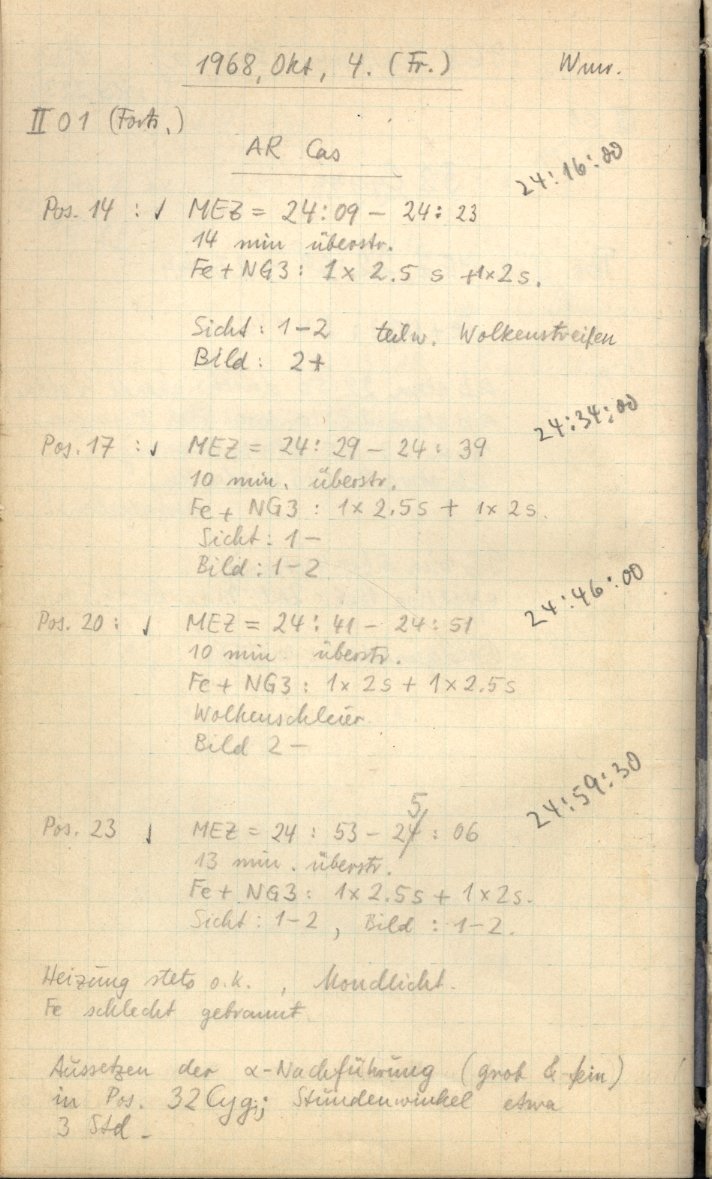 1968, Okt, 4. (Fr.)
II 01 (Forts.)
AR Cas
24:16:00
Pos. 14 : ↓ MEZ = 24:09 - 24:23
14 min überstr.
Fe + NG3 : 1x 2.5 s + 1x2s.
Sicht : 1-2 teilw. Wolkenstreifen
Bild : 2+
24:34:00
Pos. 17 : ↓ MEZ = 24:29 - 24:39
10 min. überstr.
Fe + NG3 : 1x 2.5s + 1x 2s.
Sicht : 1-
Bild : 1-2
24:46:00
Pos. 20 : ↓ MEZ = 24:41 - 24:51
10 min überstr.
Fe + NG3 : 1x 2s + 1x2.5s
Wolkenschleier
Bild 2-
24:59:30
Pos. 23 ↓ MEZ = 24 : 53 - 25 : 06
13 min. überstr.
Fe + NG3 : 1x2.5s + 1x2s.
Sicht : 1-2, Bild : 1-2.
Heizung stets o.k., Mondlicht.
Fe schlecht gebrannt.
Aussetzen der α-Nachführung (grob & fein)
in Pos. 32 Cyg; Stundenwinkel etwa
3 Std.